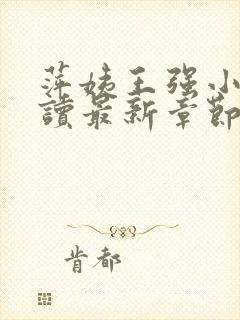 萍姨王强小
讀最新章節
肯都